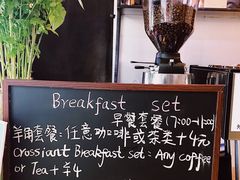 Breakfast set
早餐套餐 (7:00-11:00)
羊角套餐:任意咖啡或茶类+4元
Crossiant Breakfast set: Any coffee
or Tea + ¥4